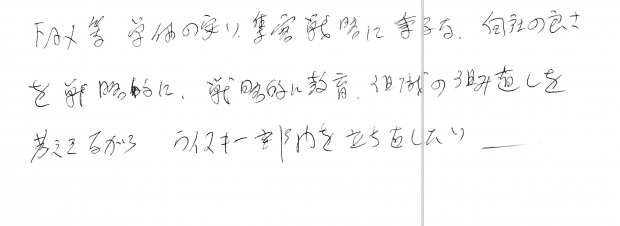 FAX等 単体の安い集客戦略に乗るな、自社の良さ
を戦略的に、戦略的に教育、組織の組み直しを
考えきるがら ウイスキー部門を立ち直したい